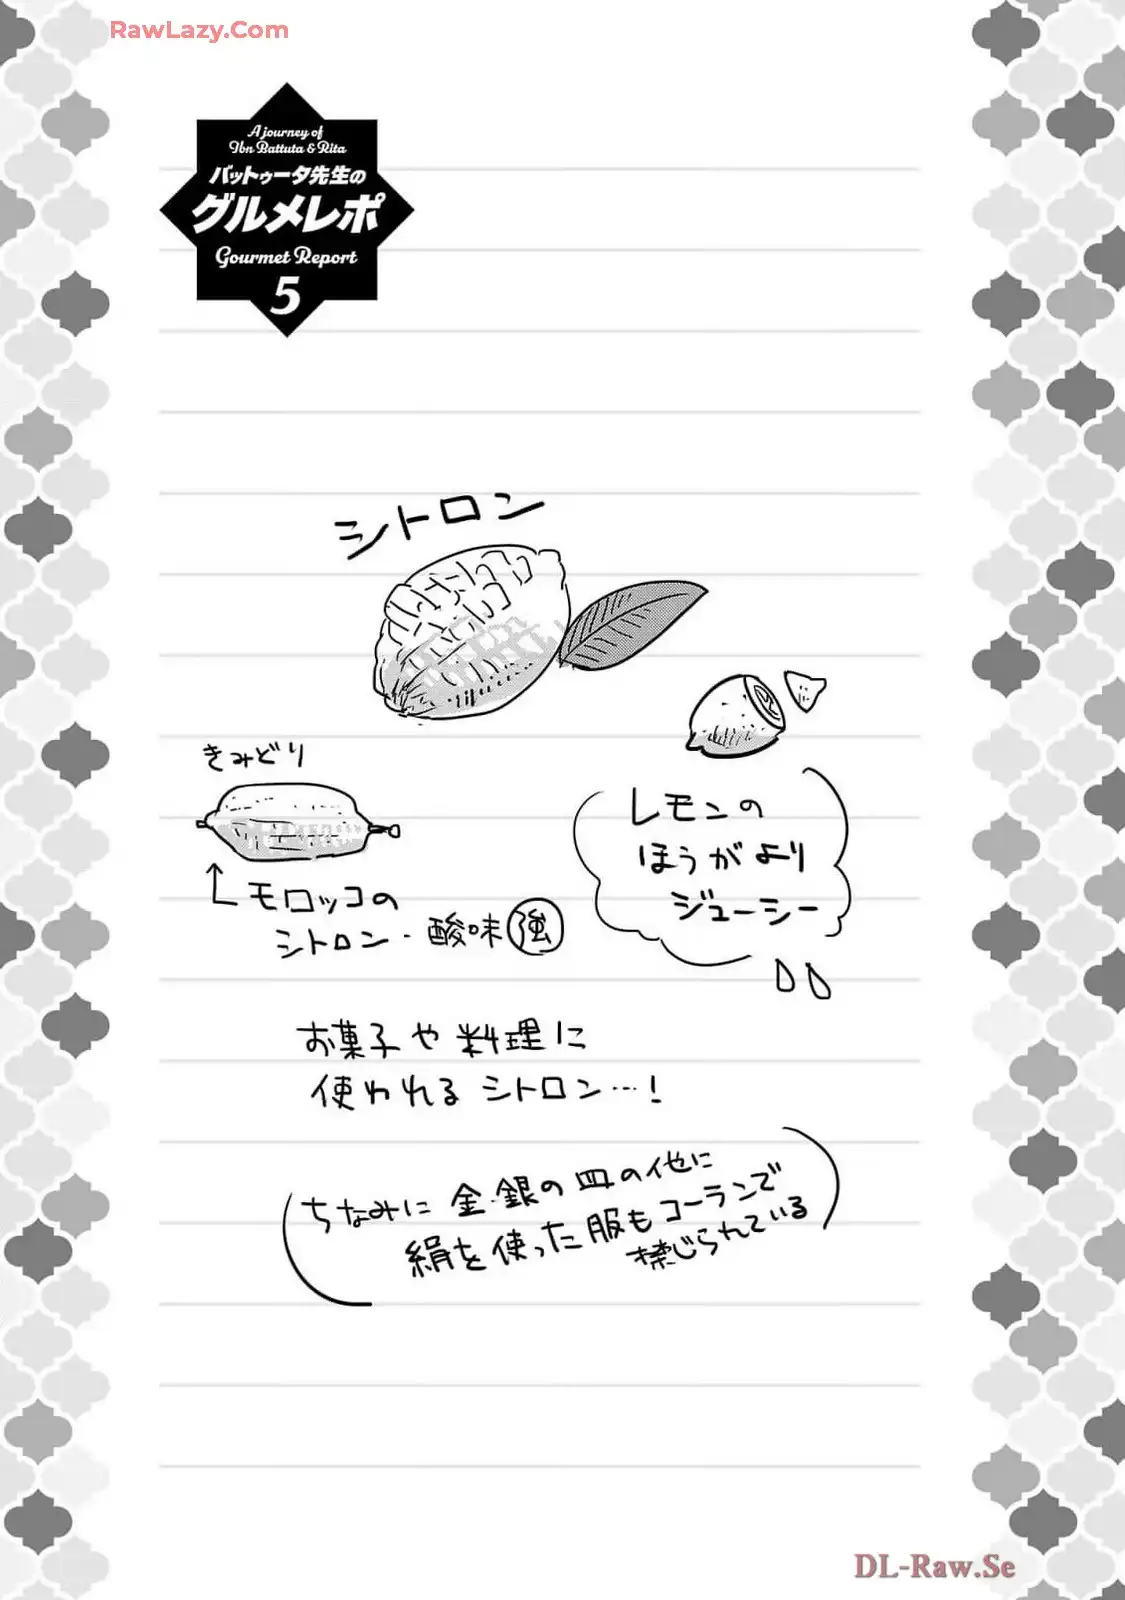 RawLazy.Com
A journey of
Ibn Battuta & Rita
バットゥータ先生の
グルメレポ
Gourmet Report
5
シトロン
きみどり
モロッコの
シトロン・酸味強
レモンの
ほうがより
ジューシー
お菓子や料理に
使われるシトロン…!
ちなみに金・銀の皿の他に
絹を使った服もコーランで
禁じられている
DL-Raw.Se